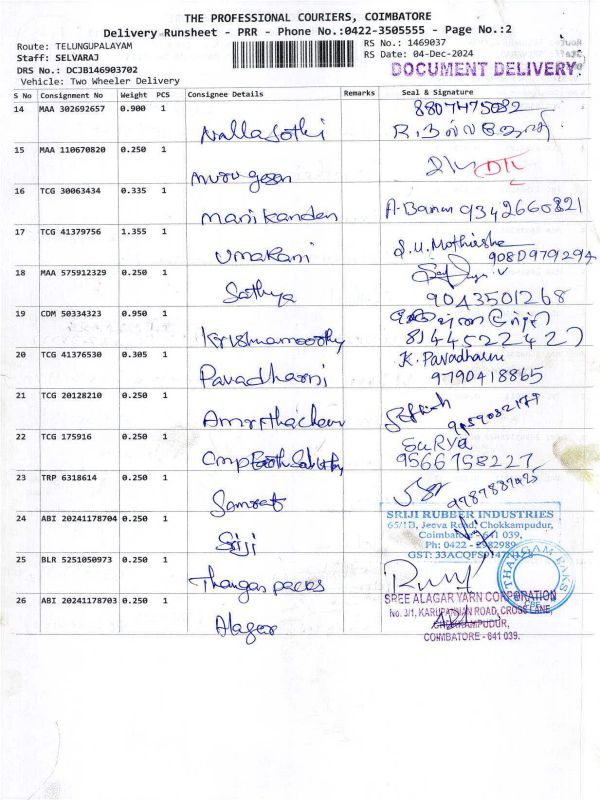 THE PROFESSIONAL COURIERS, COIMBATORE
Delivery Runsheet - PRR - Phone No.:0422-3505555 - Page No.:2
Route: TELUNGUPALAYAM
RS No.: 1469037
Staff: SELVARAJ
RS Date: 04-Dec-2024
DRS No.: DCJB146903702
DOCUMENT DELIVERY
Vehicle: Two Wheeler Delivery
S No Consignment No Weight PCS Consignee Details Remarks Seal & Signature
14 MAA 302692657 0.900 1
8807475082
Nallasothi
15 MAA 110670820 0.250 1
Murugesan
16 TCG 30063434 0.335 1
Manikandan 9342660821
17 TCG 41379756 1.355 1
Umarani
9080979294
18 MAA 575912329 0.250 1
Sathya 9043501268
19 CDM 50334323 0.950 1
Krishnamoorthy 8144522427
20 TCG 41376530 0.305 1
K. Pavadharni
Pavadharni 9790418865
21 TCG 20128210 0.250 1
22 TCG 175916 0.250 1
Surya
9566758227
23 TRP 6318614 0.250 1
Samrat
24 ABI 20241178704 0.250 1
SRIJI RUBBER INDUSTRIES
65/1B, Jeeva Road, Chokkampudur,
Coimbatore - 641 039,
Sriji
25 BLR 5251050973 0.250 1
Thangam packs
THANGAM PAKS
CBE
26 ABI 20241178703 0.250 1
SREE ALAGAR YARN CORPORATION
No. 3/1, KARUPANNAN ROAD, CROSS LANE,
Alagar
COIMBATORE - 641 039.